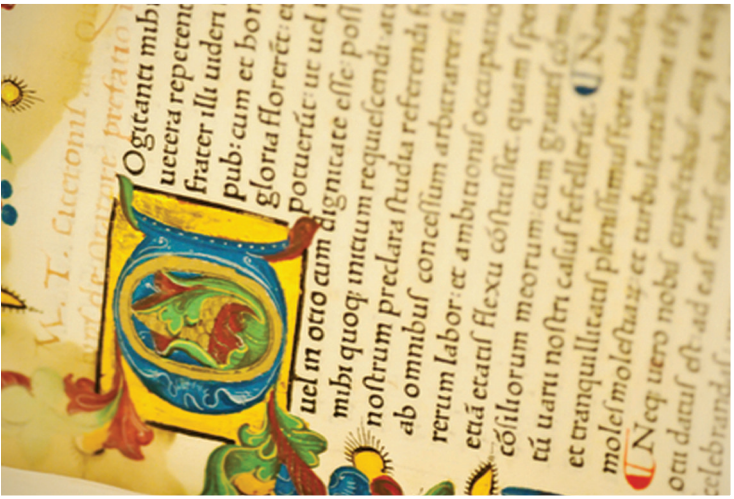 M. T. Ciceronis ad
de Oratore prefatio
Ogitanti mihi
uetera repetent
frater illi uideri
pub: cum et bon
gloria florerēt: et
potuerūt: ut uel
uel in otio cum dignitate eſſe: poſſ
mihi quoq; initium requieſcendi: at
noſtrum preclara ſtudia referendi f
ab omnibuſ conceſſum arbitrarer: ſi
rerum labor: et ambitioniſ occupatio
etiā etatiſ flexu cōſtitiſſet. quam ſpe
cōſiliorum meorum: cum graueſ cōm
tū uarii noſtri caſuſ fefellerūt. Nam
et tranquillitatiſ pleniſſimuſ fore uideba
moleſ moleſtiaꝝ et turbulentiſſime
Neq; uero nobiſ cupientibuſ atq; exop
otii datuſ eſt: ad eaſ artiſ
celebrandaſ